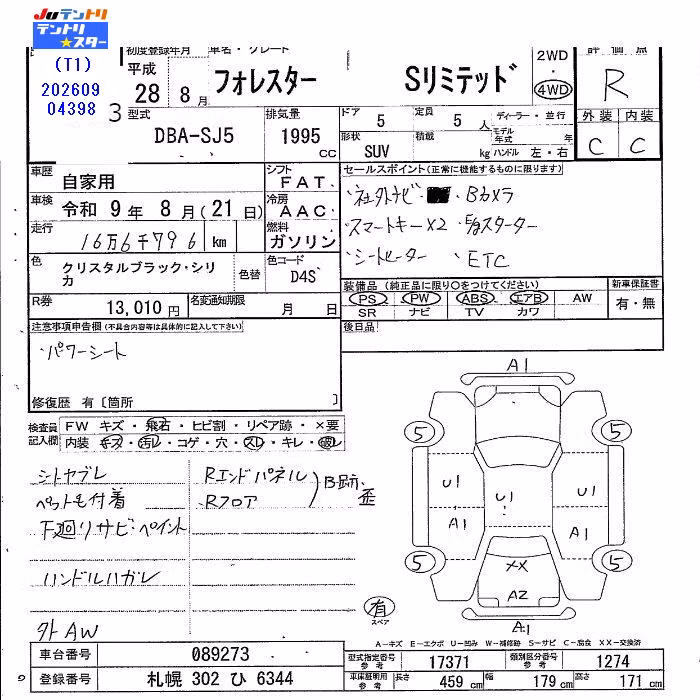 Juテントリ
テントリ
★スター
(T1)
202609
04398
3
初度登録年月
車名・グレード
評価点
平成
28 8月
フォレスター Sリミテッド
2WD
・
4WD
R
型式
DBA-SJ5
排気量
1995
CC
ドア
5
定員
5 人
ディーラー・並行
形状
SUV
積載
kg
モデル年式 年
ハンドル 左・右
外装 内装
C C
車歴
自家用
シフト
FAT
車検
令和 9年 8月(21日)
冷房
AAC
走行
16万6千796 km
燃料
ガソリン
色
クリスタルブラック・シリカ
色替
色コード
D4S
R券
13,010円
名変通知期限
月 日
セールスポイント(正常に機能するものに限ります)
・社外ナビ・ ・Bカメラ
・スマートキーX2 ・E/gスターター
・シートヒーター ・ETC
装備品 (純正品に限り○をつけてください)
PS・PW・ABS・エアB・AW
SR・ナビ・TV・カワ
新車保証書
有・無
後日品
注意事項申告欄(不具合内容等は具体的に記入して下さい)
・パワーシート
修復歴 有〔箇所 〕
検査員記入欄
FW キズ・飛石・ヒビ割・リペア跡・×要
内装 キズ・汚レ・コゲ・穴・スレ・キレ・破レ
シトヤブレ
ペット毛付着
下廻りサビ・ペイント
ハンドルハガレ
外AW
Rエンドパネル
Rフロア
B跡・歪
A1
5 5
U1 U1 U1
A1 A1
5 5
XX
A2
有
スペア
A1
A-キズ E-エクボ U-凹み W-補修跡 S-サビ C-腐食 XX-交換済
車台番号
089273
登録番号
札幌 302 ひ 6344
型式指定番号
参考
17371
類別区分番号
参考
1274
車体証明用
参考
長さ
459 cm
幅
179 cm
高さ
171 cm